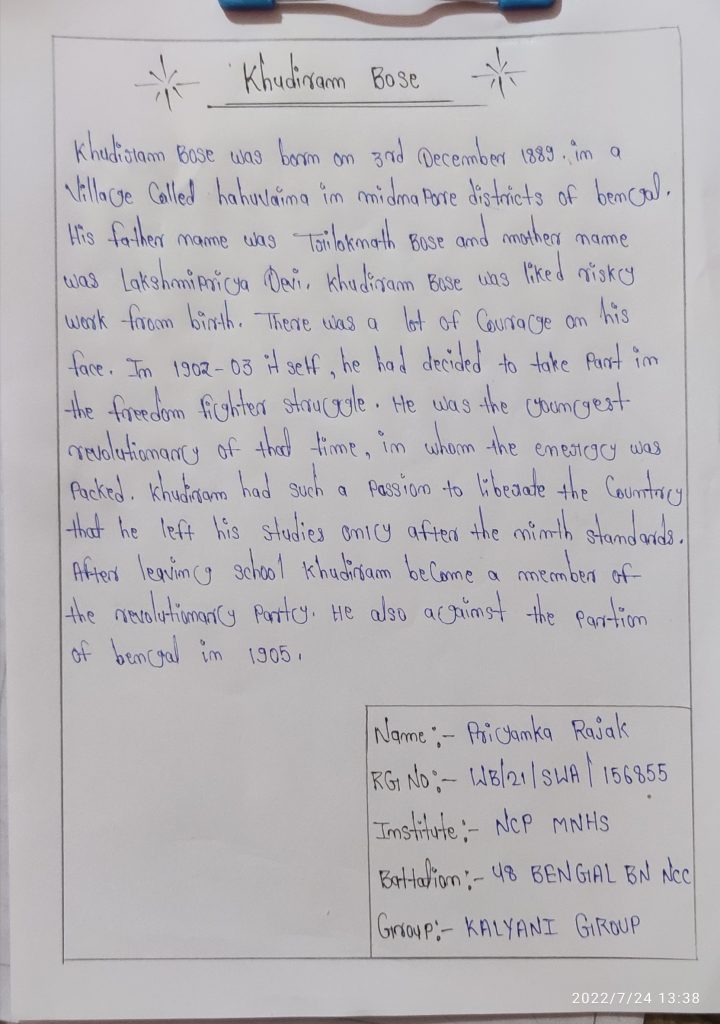 Khudiram Bose
Khudiram Bose was born on 3rd December 1889. in a
village Called hahuvaima in midnapore districts of bengal.
His father name was Triloknath Bose and mother name
was Lakshmipriya Devi. Khudiram Bose was liked risky
work from birth. There was a lot of Courage on his
face. In 1902-03 it self, he had decided to take Part in
the freedom fighter struggle. He was the youngest
revolutionary of that time, in whom the energy was
Packed. Khudiram had such a Passion to liberate the Country
that he left his studies only after the ninth standards.
After leaving school Khudiram become a member of
the revolutionary Party. He also against the Partion
of bengal in 1905.
Name:- Priyanka Rajak
RG No:- WB/21/SWA/156855
Institute:- NCP MNHS
Battalion:- 48 BENGAL BN NCC
Group:- KALYANI GROUP
2022/7/24 13:38